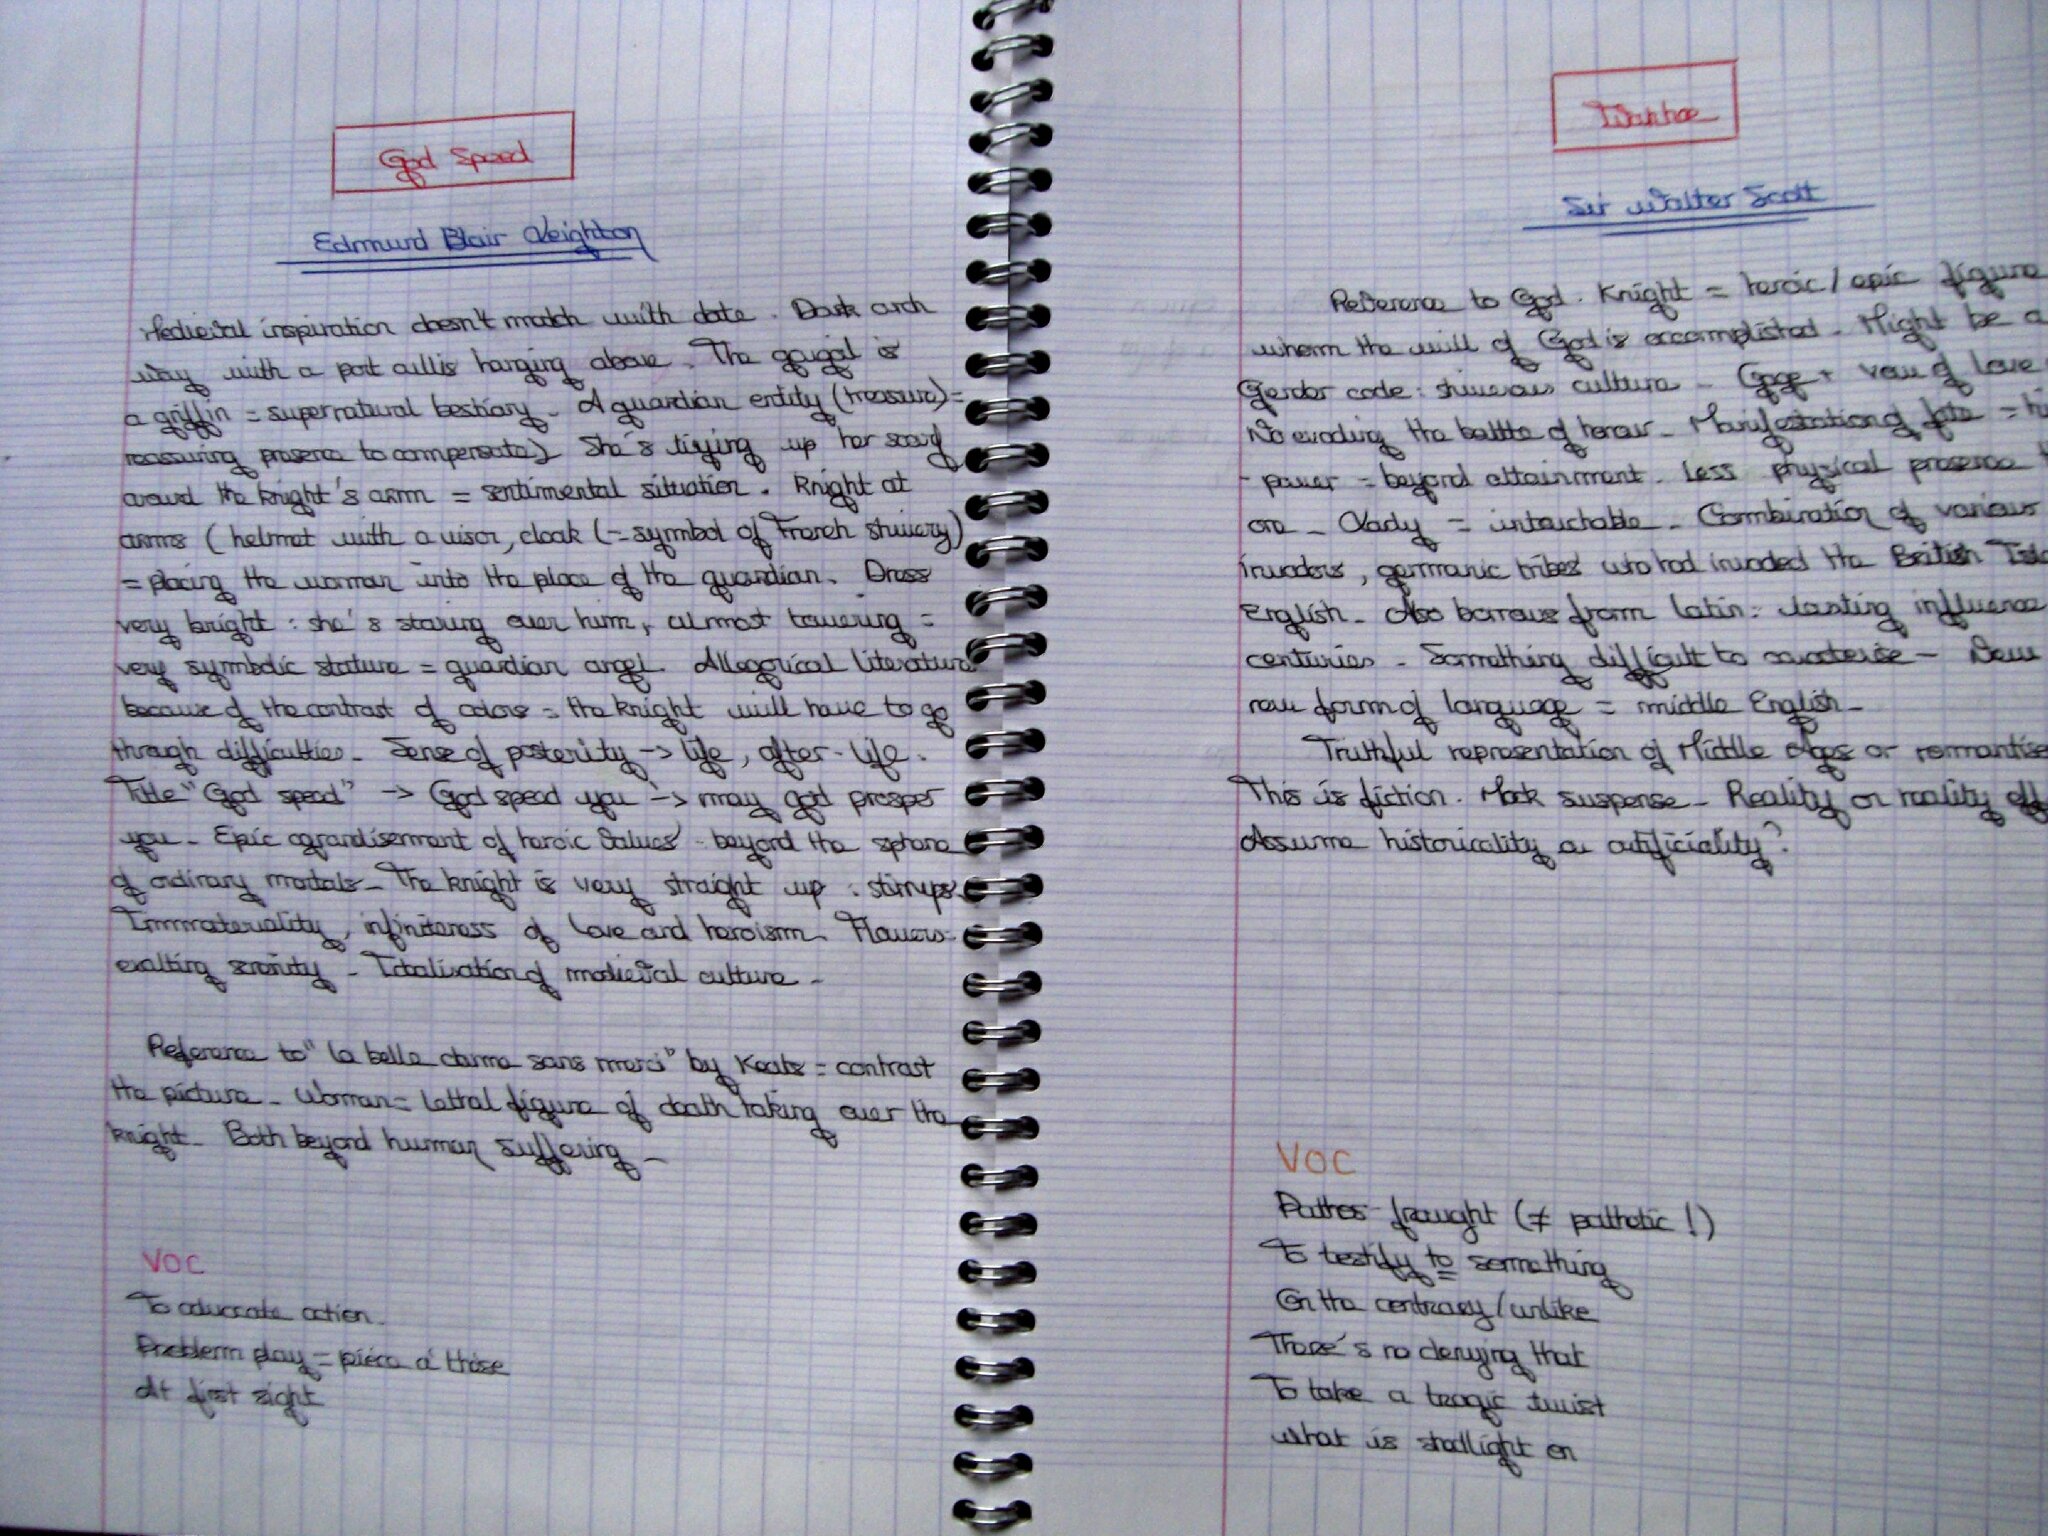 God Speed
Edmund Blair Leighton
Medieval inspiration doesn't match with date. Dark arch
way with a port cullis hanging above. The gargol is
a griffin = supernatural bestiary. A guardian entity (treasure) =
reassuring presence to compensate). She's tiying up her scarf
around the knight's arm = sentimental situation. Knight at
arms (helmet with a visor, cloak (= symbol of French shivery)
= placing the woman into the place of the guardian. Dress
very bright : she's staring over him, almost towering =
very symbolic stature = guardian angel. Allegorical literature
because of the contrast of colors = the knight will have to go
through difficulties. Sense of posterity -> life, after-life.
Title "God speed" -> God speed you -> may god prosper
you. Epic agrandisement of heroic values - beyond the sphere
of ordinary mortals. The knight is very straight up : stirrups.
Immateriality, infiniteness of love and heroism. Flowers :
exalting serenity. Totalisation of medieval culture.
Reference to "la belle dame sans merci" by Keats = contrast
the picture. Woman = lethal figure of death taking over the
knight. Both beyond human suffering.
VOC
To advocate action.
Problem play = pièce à thèse
At first sight
Ivanhoe
Sir Walter Scott
Reference to God. Knight = heroic / epic figure
whom the will of God is accomplished. Might be a
Gender code : shiverous culture. Gage + vow of love
No evading the battle of honour. Manifestation of fate =
- power = beyond attainment. Less physical presence
one. Lady = intouchable. Combination of various
invadors, germanic tribes who had invaded the British
English. Also borrows from Latin : lasting influence
centuries. Something difficult to
new form of language = middle English.
Truthful representation of Middle Ages or romantise
This is fiction. Mock suspense. Reality or reality eff
Assume historicality or artificiality?
VOC
Pathos-fraught (≠ pathetic !)
To testify to something
On the contrary / unlike
There's no denying that
To take a tragic twist
What is